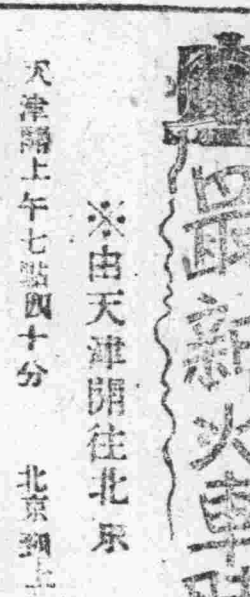 最新火車時
※由天津開往北京
天津開上午七點四十分 北京到上